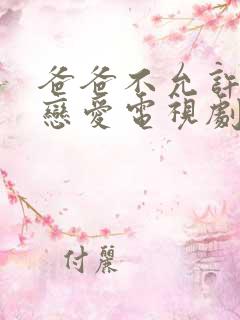 爸爸不允許
戀愛電視劇
付麗